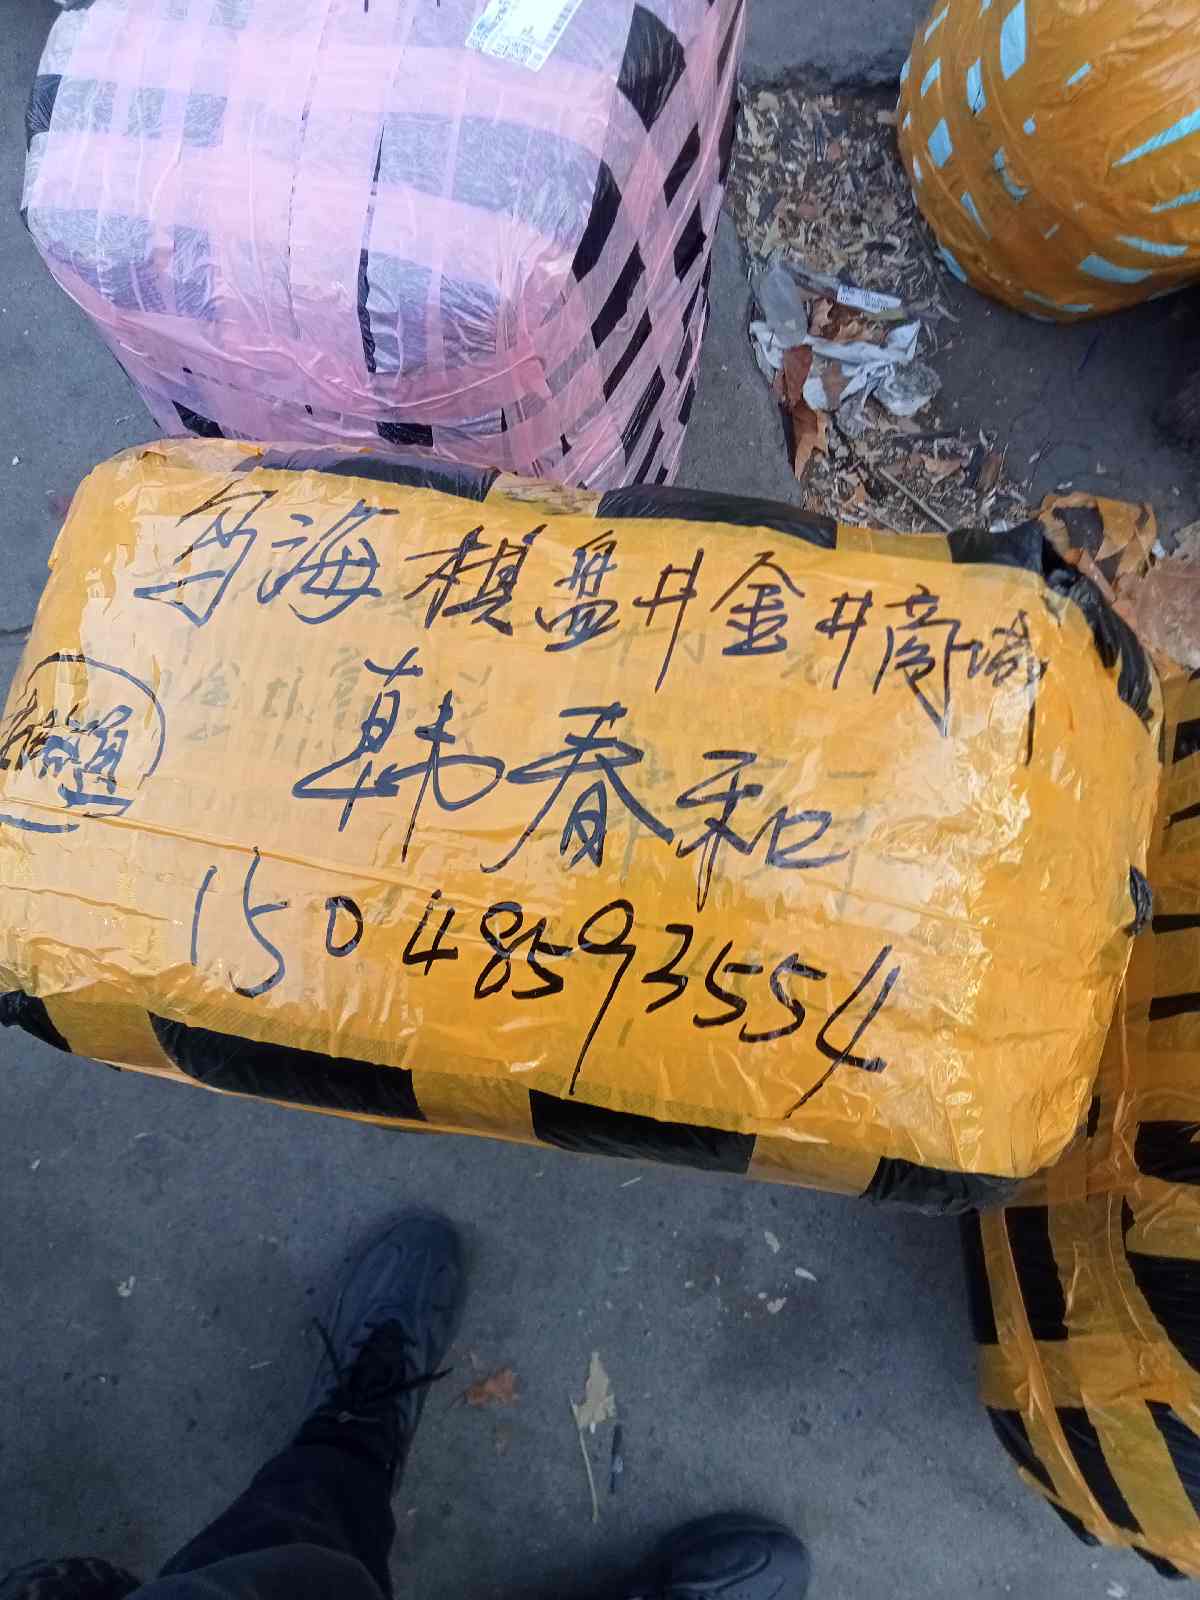 乌海棋盘井金井商城
韩春和
15048593554